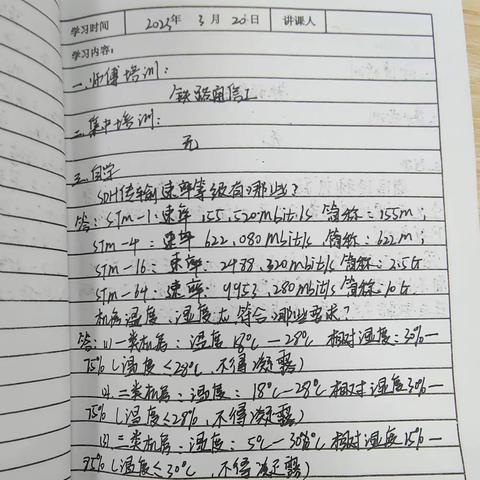 学习时间 2023年 3月 20日 讲课人
学习内容:
一.师傅培训:
铁路通信工
二.集中培训:
无
三.自学
SDH传输速率等级有哪些?
答: STM-1:速率 155.520mbit/s 简称:155m;
STM-4: 速率 622.080mbit/s 简称:622m;
STM-16: 速率: 2488.320mbit/s 简称:2.5G
STM-64: 速率: 9953.280mbit/s 简称:10G
机房温度、湿度应符合哪些要求?
答:(1)一类机房:温度 18℃-28℃ 相对湿度:30%-
75%(温度<28℃,不得凝露)
(2).二类机房:温度: 18℃-28℃ 相对湿度30%-
75%(温度<28℃,不得凝露)
(3).三类机房:温度: 5℃-30℃ 相对湿度15%-
85%(温度<30℃,不得凝露)